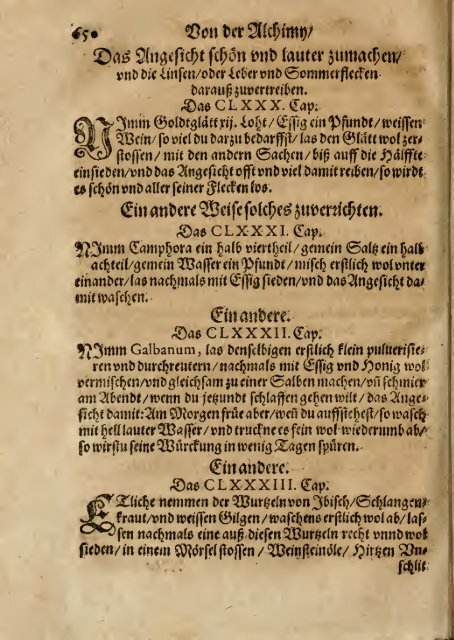 650 Von der Alchimy/
Das Angesicht schön vnd lauter zumachen/
vnd die Linsen/oder Leber vnd Sommerflecken
darauß zuvertreiben.
Das CLXXX. Cap.
NImm Goldtglätt xij. Loht/ Essig ein Pfundt/ weissen
Wein/ so viel du darzu bedarffst/ las den Glätt wol zer⸗
stossen/ mit den andern Sachen/ biß auff die Hälffte
einsieden/vnd das Angesicht offt vnd viel damit reiben/so wirdt
es schön vnd aller seiner Flecken los.
Ein andere Weise solches zuverrichten.
Das CLXXXI. Cap.
NImm Camphora ein halb viertheil/gemein Saltz ein halb
achteil/gemein Wasser ein Pfundt/misch erstlich wol vnter
einander/las nachmals mit Essig sieden/vnd das Angesicht da⸗
mit waschen.
Ein andere.
Das CLXXXII. Cap.
NImm Galbanum, las denselbigen erstlich klein puluerisie⸗
ren vnd durchreutern/ nachmals mit Essig vnd Honig wol
vermischen/vnd gleichsam zu einer Salben machen/vñ schmier
am Abendt/wenn du jetzundt schlaffen gehen wilt/das Ange⸗
sicht damit: Am Morgen früe aber/weñ du auffstehest/so wasch
mit hell lauter Wasser/ vnd truckne es fein wol wiederumb ab/
so wirstu seine Würckung in wenig Tagen spüren.
Ein andere.
Das CLXXXIII. Cap.
ETliche nemmen der Wurtzeln von Ibisch/Schlangen⸗
kraut/vnd weissen Gilgen/waschens erstlich wol ab/las⸗
sen nachmals eine auß diesen Wurtzeln recht vnnd wol
sieden/ in einem Mörsel stossen/ Weinsteinöle/ Hirtzen Vn⸗
schlit